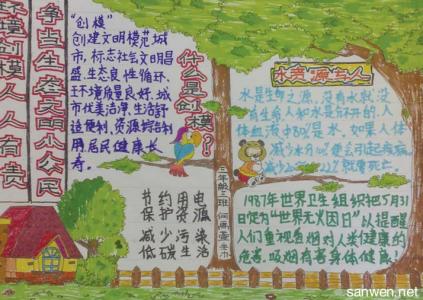 环境创模人人有责
争当生态文明小公民
“创模”
创建文明模范城
市，标志社会文明昌
盛，生态良性循环、
环境质量良好、城
市优美洁净，生活舒
适便利，资源综合利
用居民健康长
寿。
什么是创模？！
节约用电
保护资源
减少污染
低碳生活
三年级二班
水资源与人
水是生命之源，没有水就没
有生命人和水是分不开的，人
体血液中80%是水，如果人体
减少水
就要死亡。
1987年世界卫生组织把5月31
日定为“世界无火因日”以提醒
人们重视吸烟对人类健康的
危害，吸烟有害身体健康！
sanwen.net